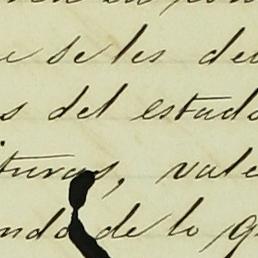 e se les de
s del estado
ituras, vale
ndo de lo q